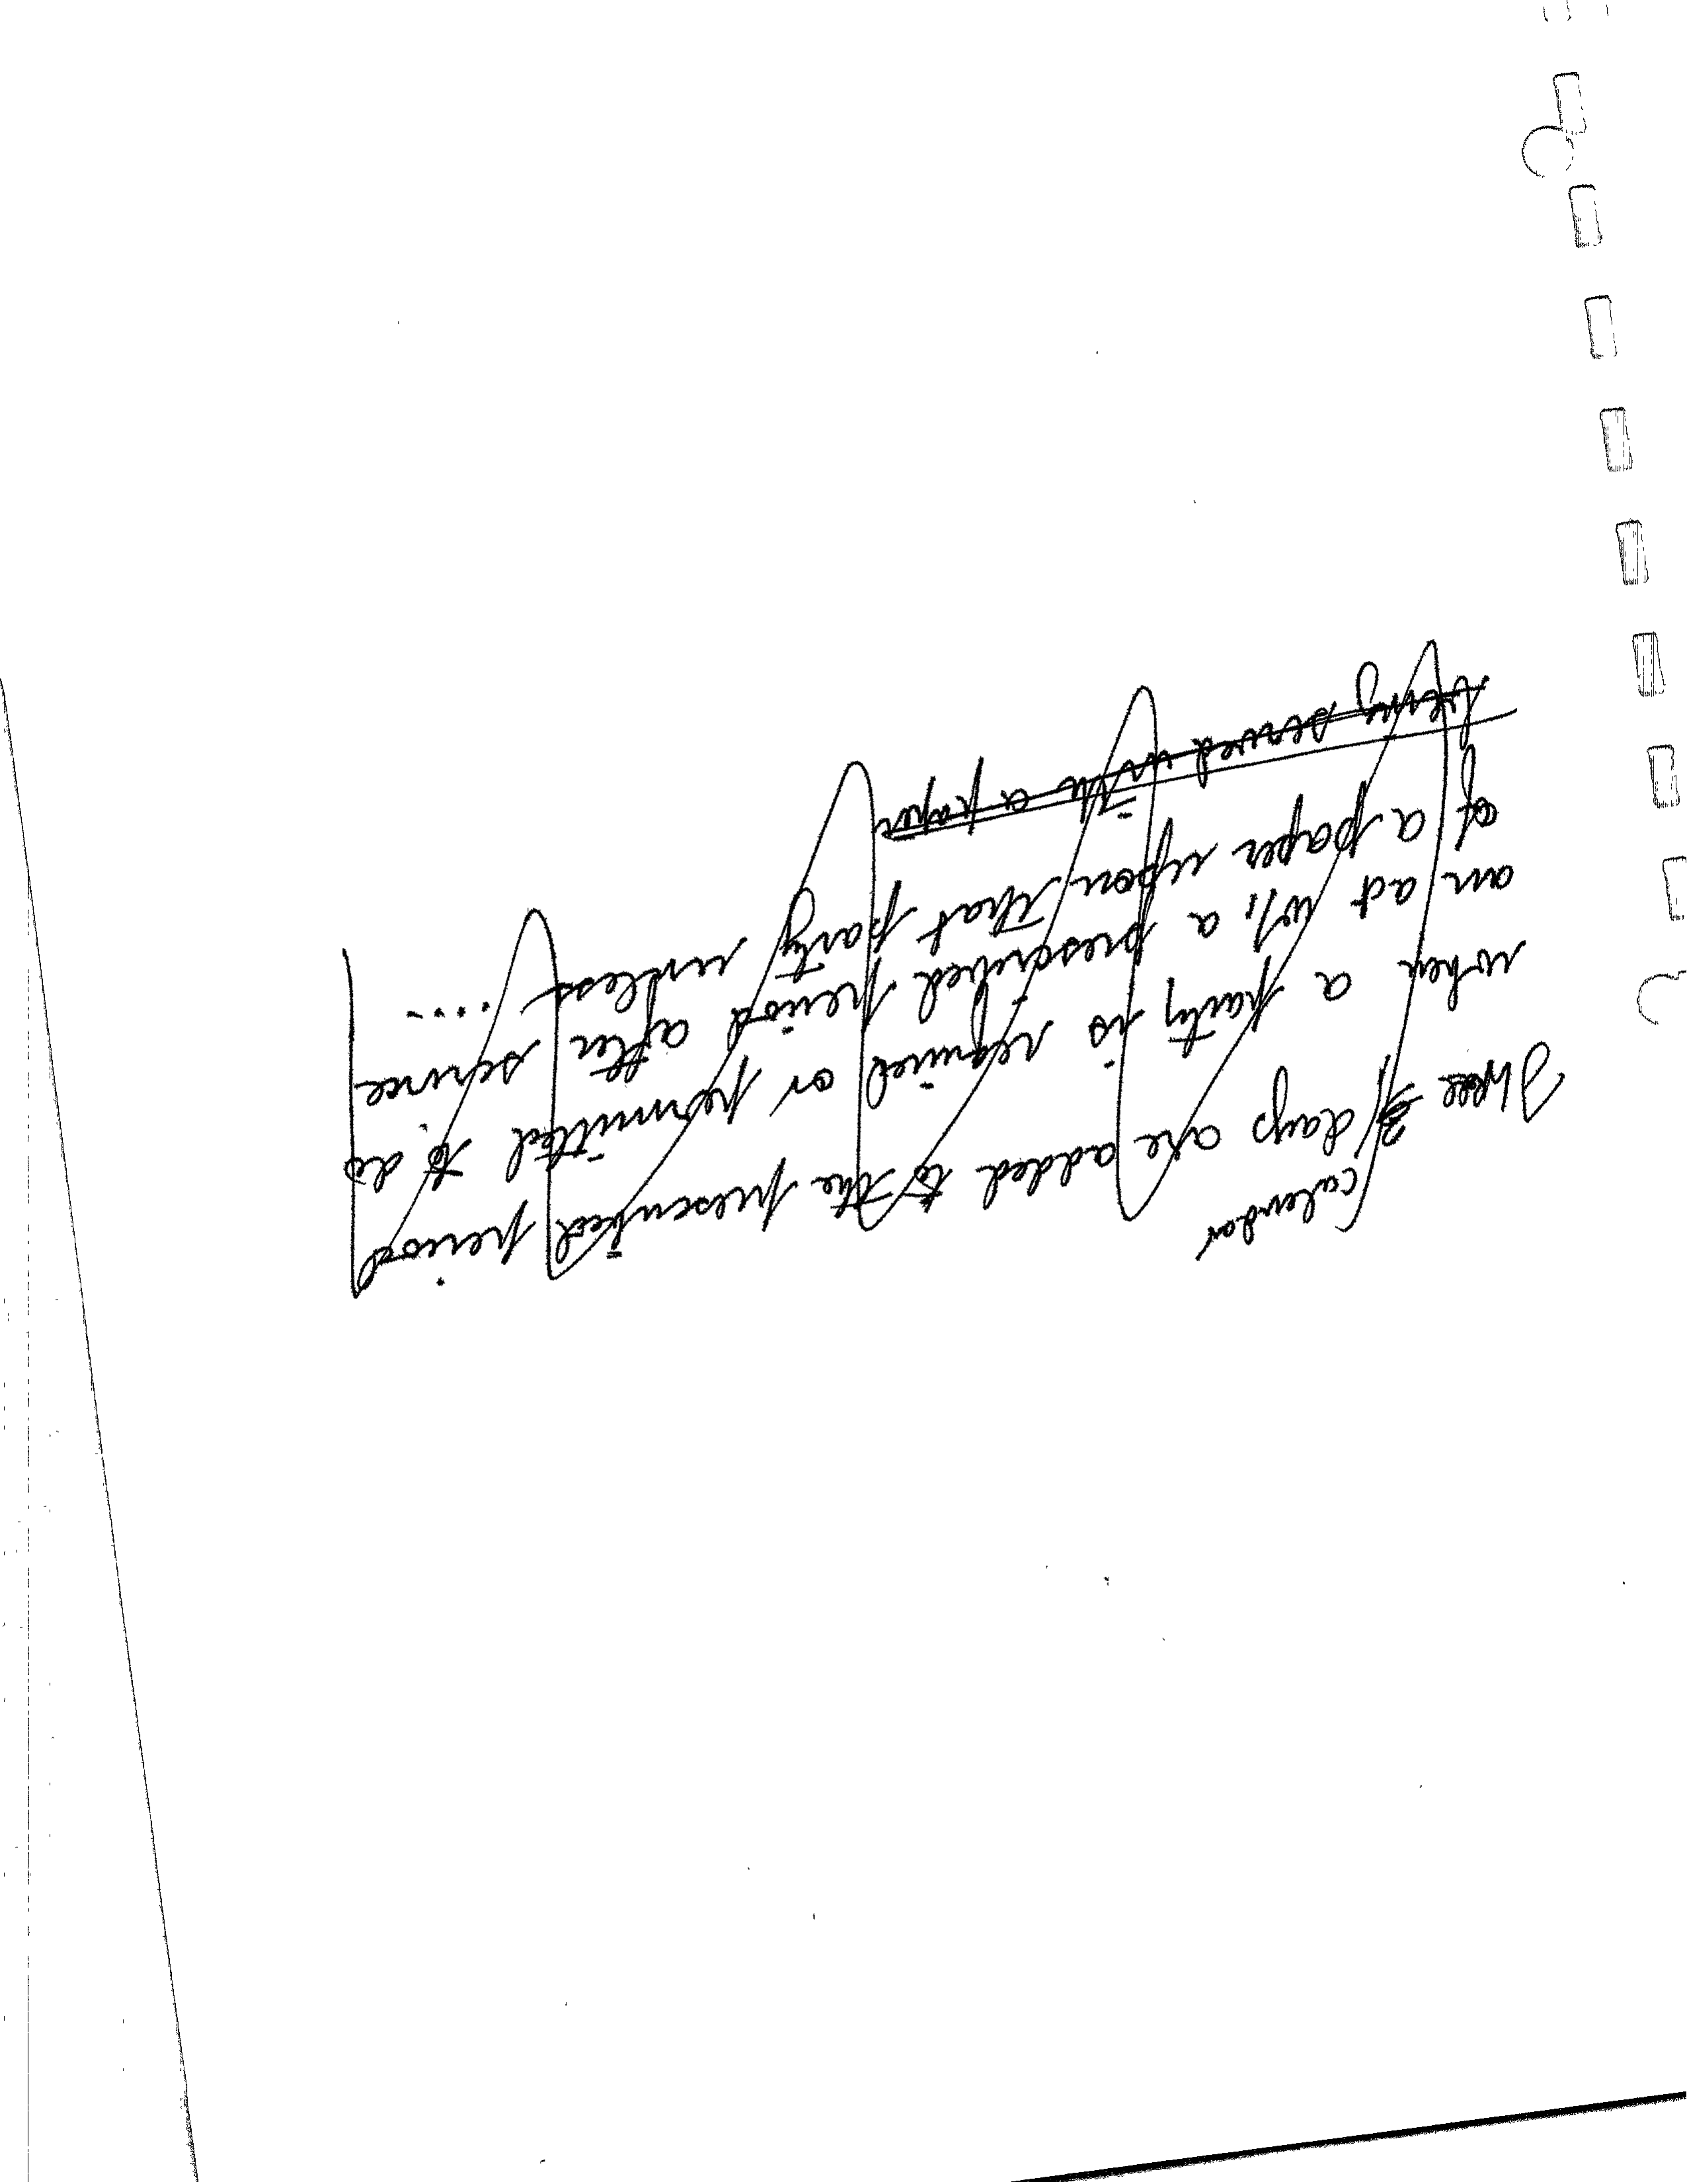 calendar
Three 3 days are added to the prescribed period
when a party is required or permitted to do
an act w/i a prescribed period after service
of a paper upon that party unless ....
being served with a paper